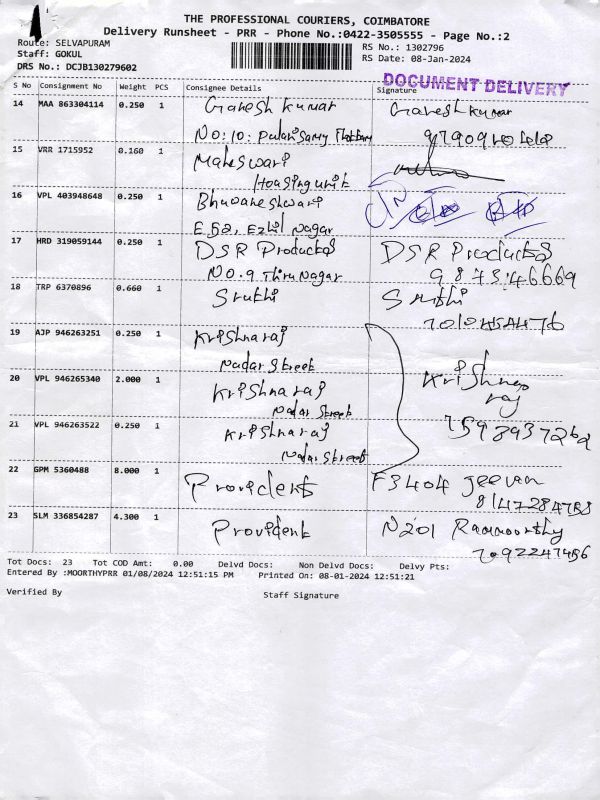 THE PROFESSIONAL COURIERS, COIMBATORE
Delivery Runsheet - PRR - Phone No.:0422-3505555 - Page No.:2
Route: SELVAPURAM
Staff: GOKUL
DRS No.: DCJB130279602
RS No.: 1302796
RS Date: 08-Jan-2024
DOCUMENT DELIVERY
S No Consignment No Weight PCS Consignee Details Signature
14 MAA 863304114 0.250 1 Ganesh Kumar Ganesh Kumar
No:10:
15 VRR 1715952 0.160 1 Maheswari
Housing unit
16 VPL 403948648 0.250 1 Bhuvaneshwari
E 52, Ezhil Nagar
17 HRD 319059144 0.250 1 DSR Products DSR Products
No.9 Thiru Nagar 9873546669
18 TRP 6370896 0.660 1 Sruthi Sruthi
19 AJP 946263251 0.250 1 Krishnaraj
Nadar Street
20 VPL 946265340 2.000 1 Krishnaraj Krishna
Nadar Street raj
21 VPL 946263522 0.250 1 Krishnaraj
Nadar Street
22 GPM 5360488 8.000 1 Provident F3404 Jeevan
23 SLM 336854287 4.300 1 Provident N201 Ramoorthy
7092247456
Tot Docs: 23 Tot COD Amt: 0.00 Delvd Docs: Non Delvd Docs: Delvy Pts:
Entered By :MOORTHYPRR 01/08/2024 12:51:15 PM Printed On: 08-01-2024 12:51:21
Verified By Staff Signature